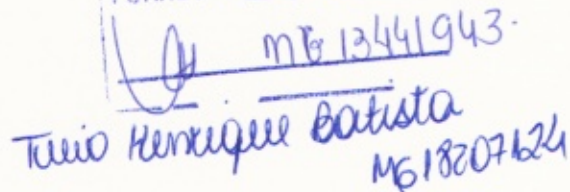 MG 13441943.
Henrique Batista
MG 18207624